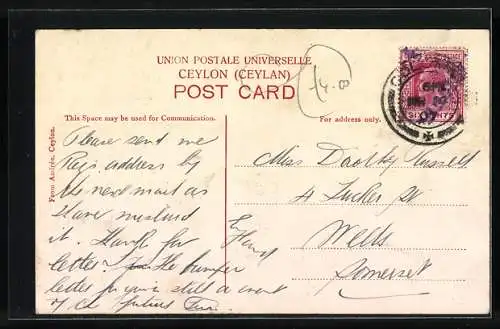 UNION POSTALE UNIVERSELLE
CEYLON (CEYLAN)
POST CARD
14.00
This Space may be used for Communication.
For address only.
From Andrée, Ceylon.
Please send me
Reg's address by
the next mail as
I have mislaid
it. Thanks for
letter. the bumper
letter for your still a event
of the future
Miss Dorothy Russell
4 Tucker St
Wells
Somerset
SIX CENTS